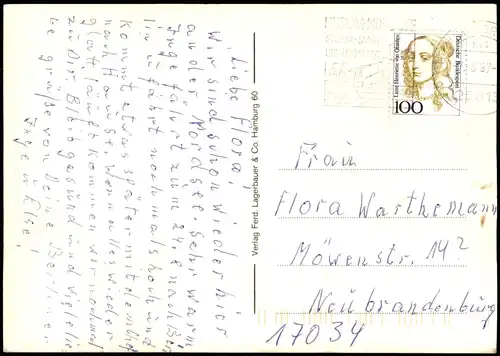 Liebe Flora!
Wir sind schon wieder hier
an der Nordsee. Sehr warm
Inge fährt zum 24.8 nach Ber
lin u fährt nochmals hoch und
kommt etwas später mit dem
nach Hause. Wenn alles wieder
glatt läuft kommen wir nochmal
zu Dir. Bleib gesund und viele lie
be Grüße von Deine Berliner
Inge u Else!
Verlag Ferd. Lagerbauer & Co. Hamburg 60
Deutsche Bundespost
Luise Henriette von Oranien
100
Frau
Flora Warthemann
Möwenstr. 14?
Neubrandenburg
17034